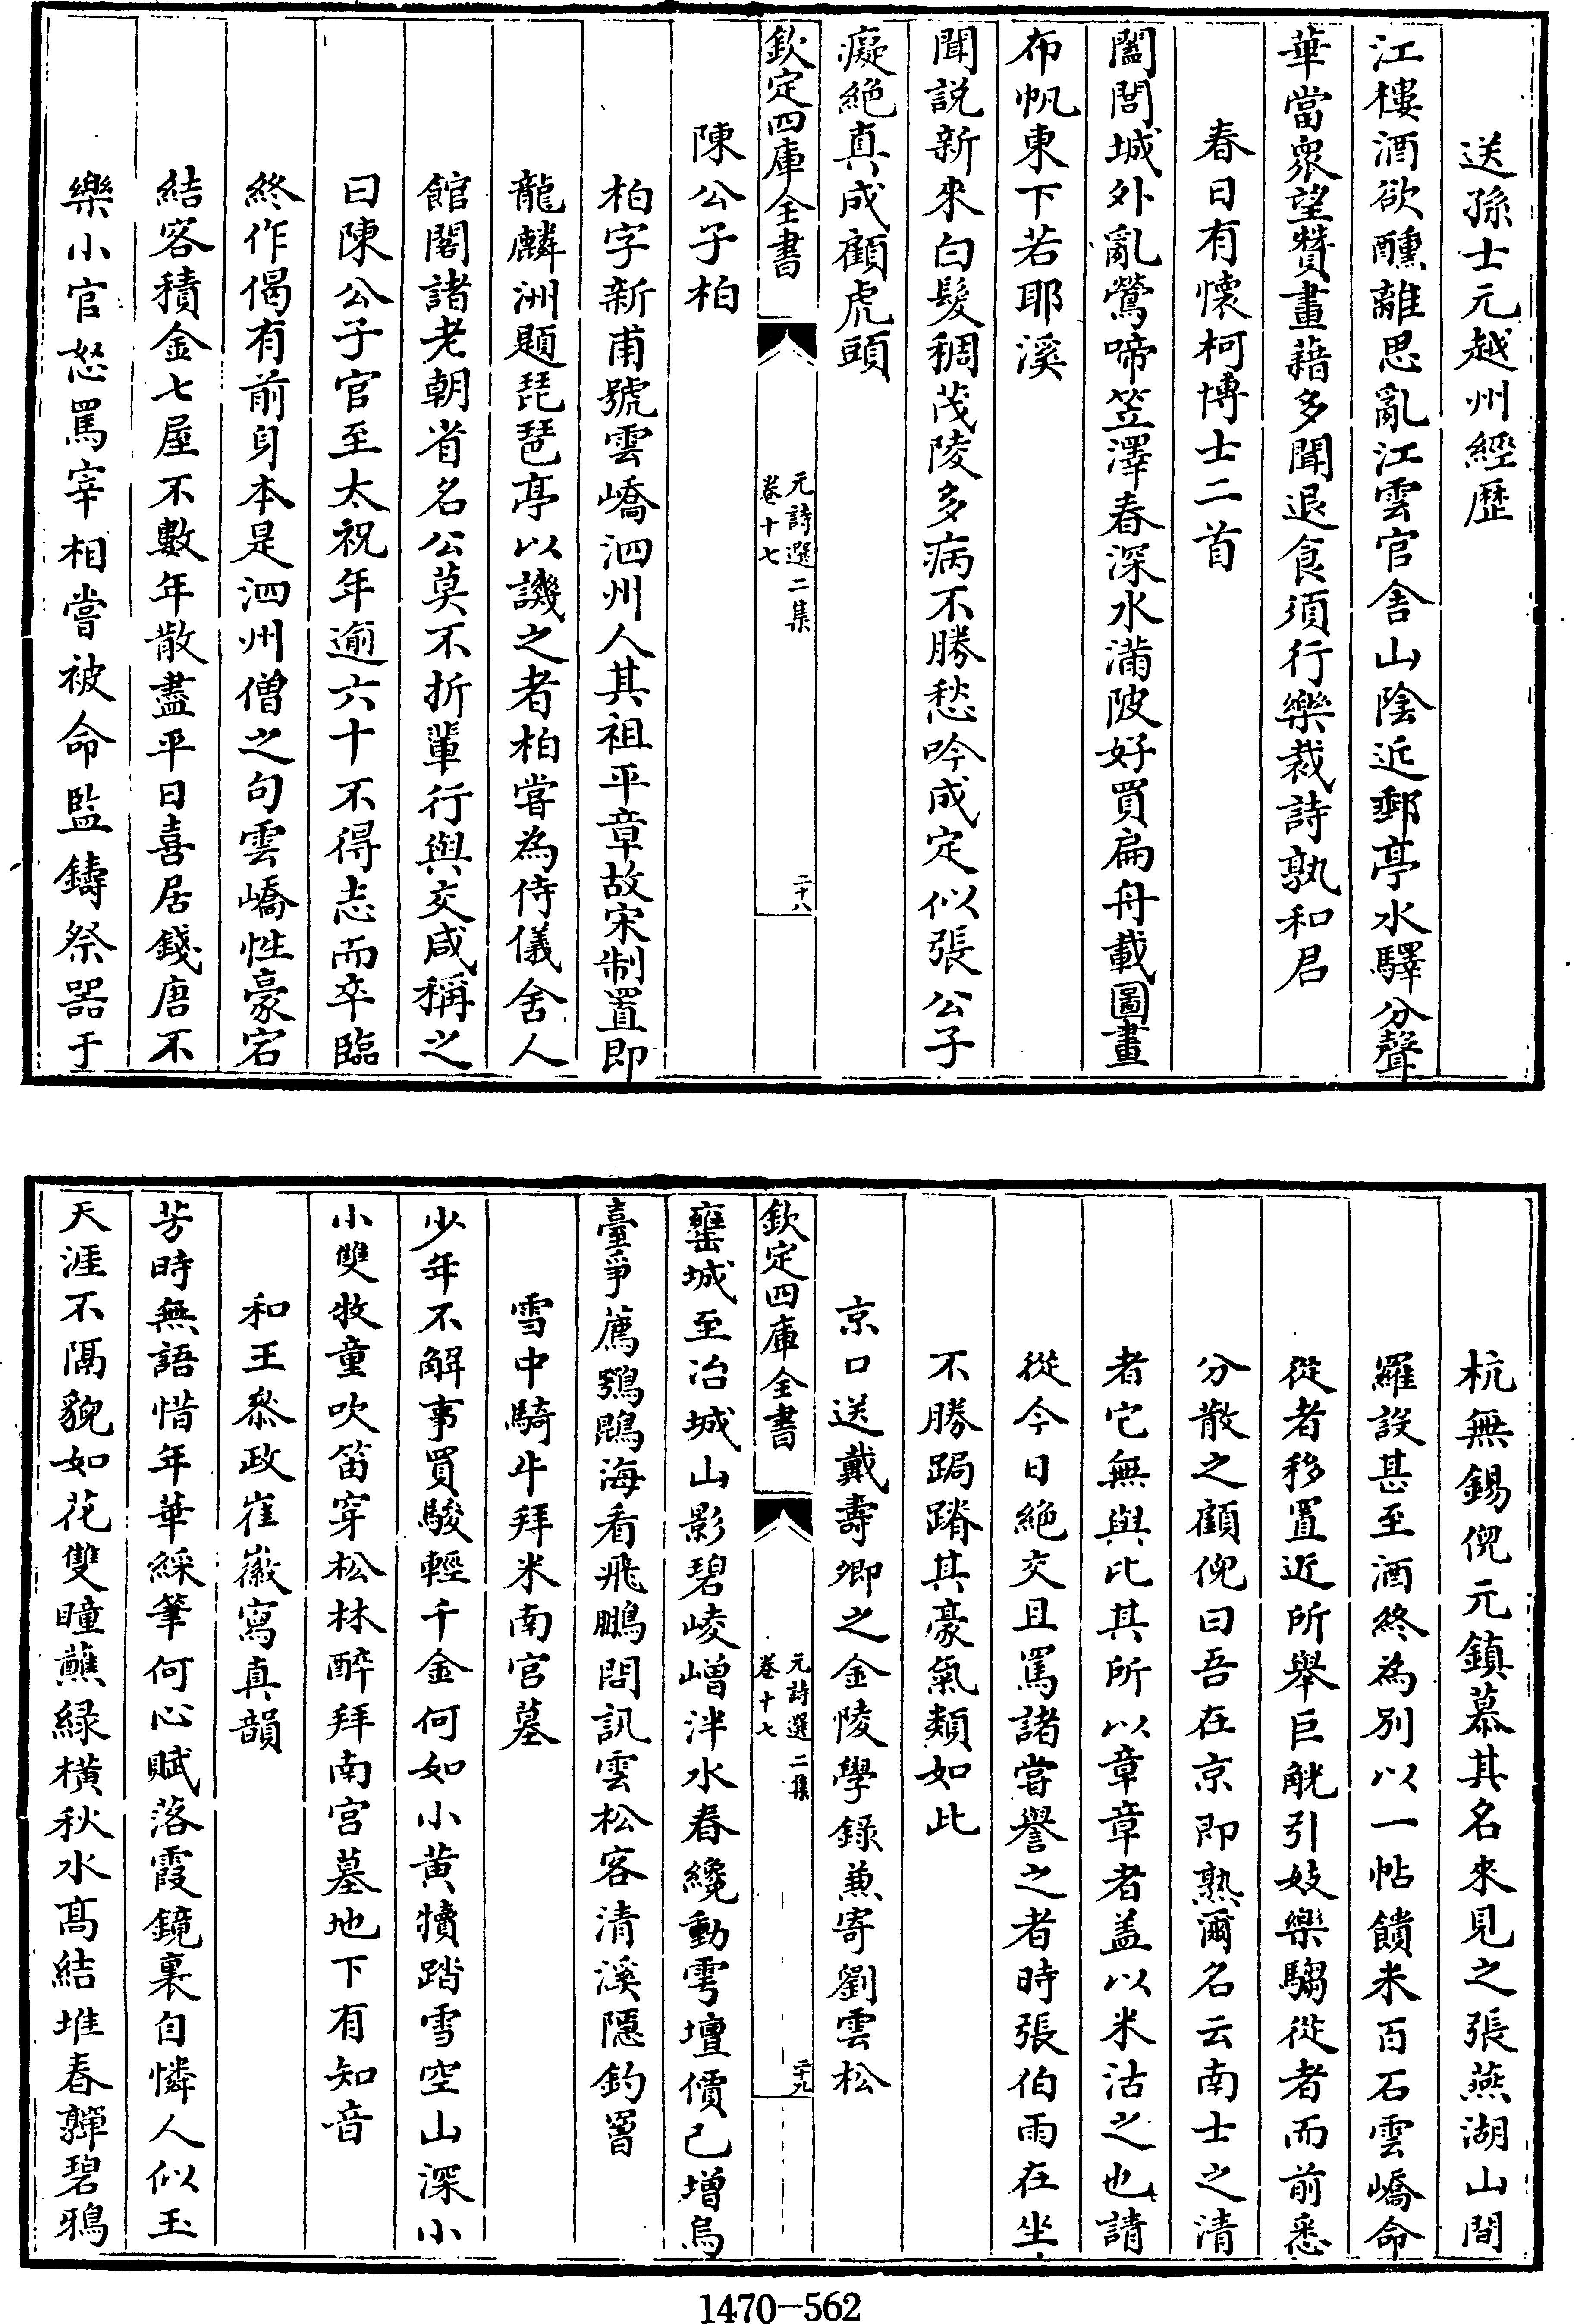 送孫士元越州經歷
江樓酒欲醺離思亂江雲官舍山陰近郵亭水驛分聲
華當衆望贊畫藉多聞退食須行樂裁詩孰和君
春日有懷柯博士二首
闔閭城外亂鶯啼笠澤春深水滿陂好買扁舟載圖畫
布帆東下若耶溪
聞説新來白髮稠茂陵多病不勝愁吟成定似張公子
癡絶真成顧虎頭
欽定四庫全書
元詩選二集
卷十七
二十八
陳公子柏
柏字新甫號雲嶠泗州人其祖平章故宋制置即
龍麟洲題琵琶亭以譏之者柏嘗為侍儀舍人
館閣諸老朝省名公莫不折輩行與交咸稱之
曰陳公子官至太祝年逾六十不得志而卒臨
終作偈有前身本是泗州僧之句雲嶠性豪宕
結客積金七屋不數年散盡平日喜居錢唐不
樂小官怒罵宰相嘗被命監鑄祭器于
杭無錫倪元鎮慕其名來見之張燕湖山間
羅設甚至酒終為別以一帖饋米百石雲嶠命
從者移置近所舉巨觥引妓樂騶從者而前悉
分散之顧倪曰吾在京即熟爾名云南士之清
者它無與比其所以章章者盖以米沽之也請
從今日絶交且罵諸嘗譽之者時張伯雨在坐
不勝跼蹐其豪氣類如此
京口送戴壽卿之金陵學録兼寄劉雲松
欽定四庫全書
元詩選二集
卷十七
二十九
甕城至冶城山影碧崚嶒泮水春纔動雩壇價已增烏
臺爭薦鶚鵾海看飛鵬問訊雲松客清溪隱釣罾
雪中騎牛拜米南宫墓
少年不解事買駿輕千金何如小黄犢踏雪空山深小
小雙牧童吹笛穿松林醉拜南宫墓地下有知音
和王叅政崔徽寫真韻
芳時無語惜年華綵筆何心賦落霞鏡裏自憐人似玉
天涯不隔貌如花雙瞳蘸緑横秋水髙結堆春嚲碧鴉
1470-562